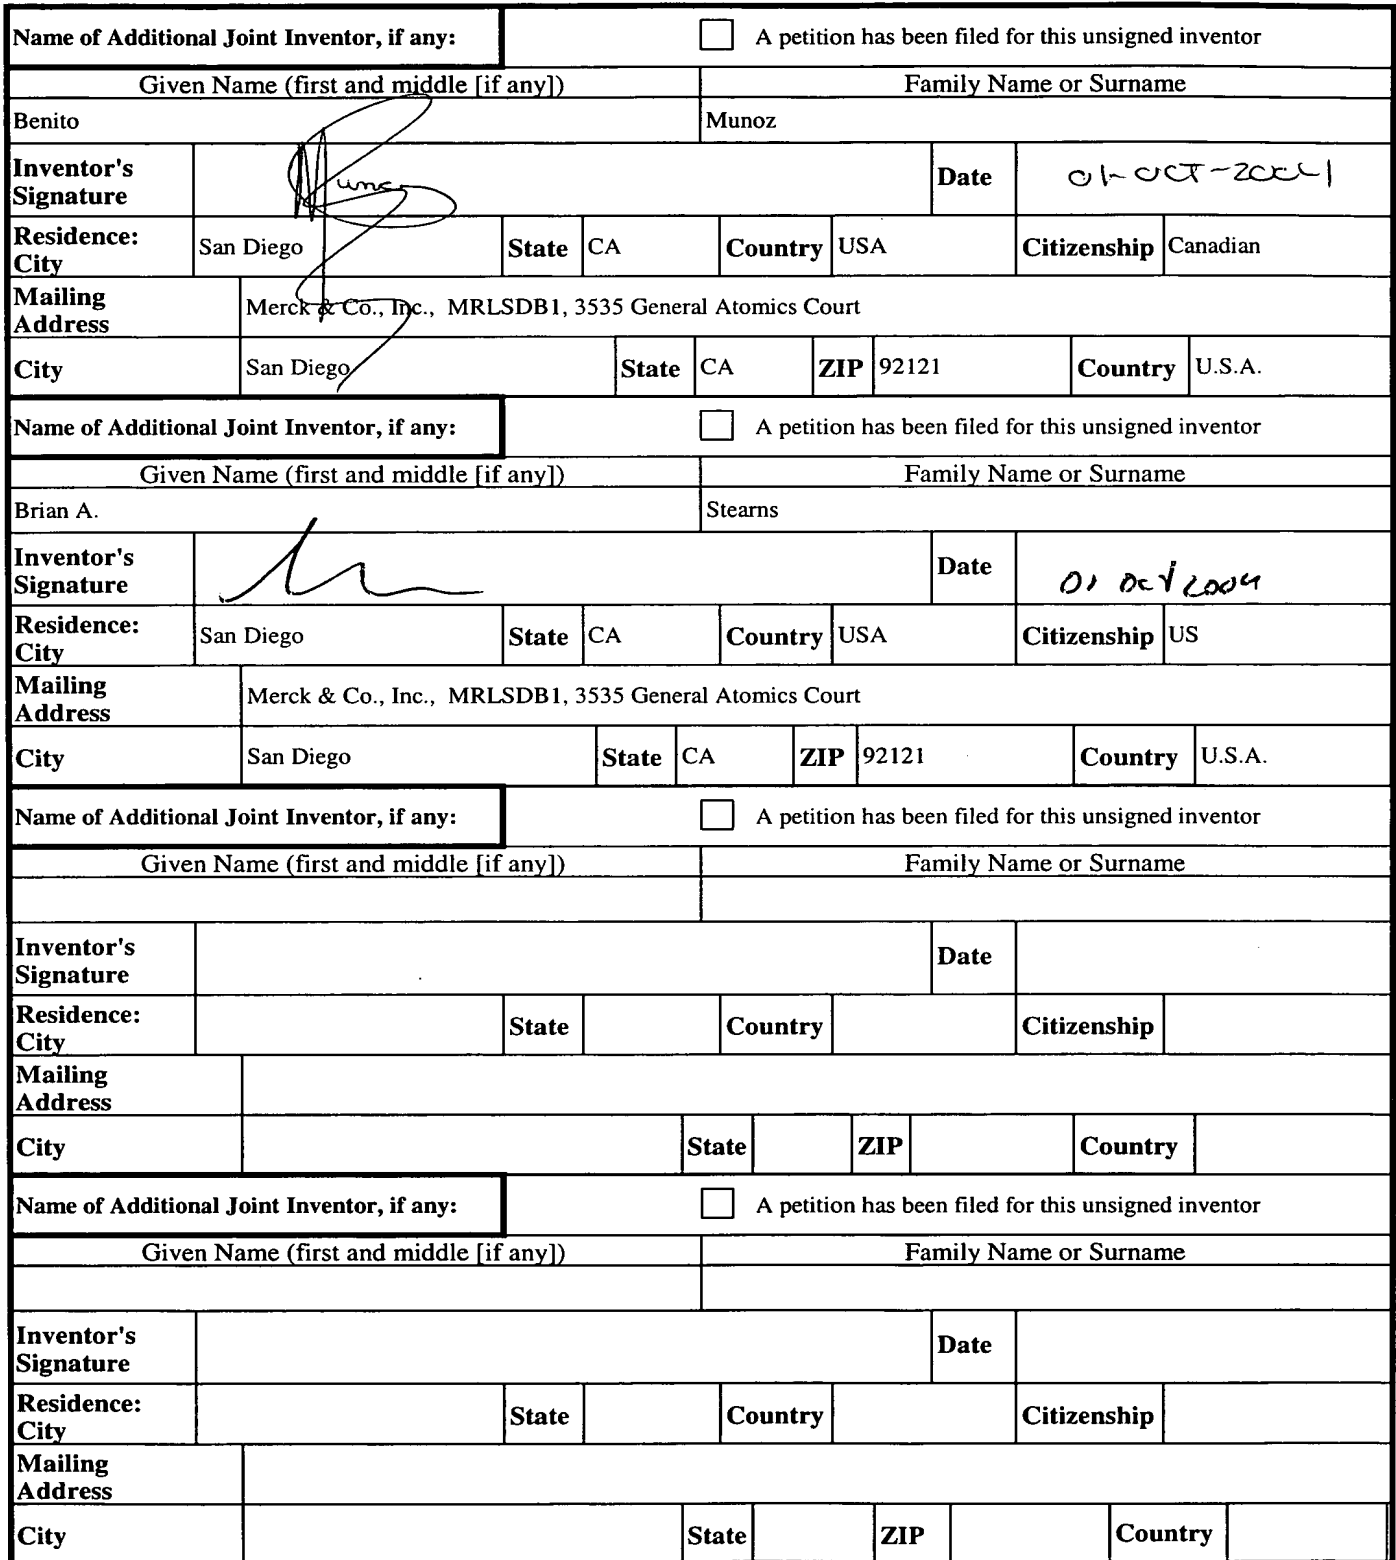 Name of Additional Joint Inventor, if any: A petition has been filed for this unsigned inventor
Given Name (first and middle [if any]) Family Name or Surname
Benito Munoz
Inventor's Signature Date 01-OCT-2004
Residence: City San Diego State CA Country USA Citizenship Canadian
Mailing Address Merck & Co., Inc., MRLSDB1, 3535 General Atomics Court
City San Diego State CA ZIP 92121 Country U.S.A.
Name of Additional Joint Inventor, if any: A petition has been filed for this unsigned inventor
Given Name (first and middle [if any]) Family Name or Surname
Brian A. Stearns
Inventor's Signature Date 01 Oct 2004
Residence: City San Diego State CA Country USA Citizenship US
Mailing Address Merck & Co., Inc., MRLSDB1, 3535 General Atomics Court
City San Diego State CA ZIP 92121 Country U.S.A.
Name of Additional Joint Inventor, if any: A petition has been filed for this unsigned inventor
Given Name (first and middle [if any]) Family Name or Surname
Inventor's Signature Date
Residence: City State Country Citizenship
Mailing Address
City State ZIP Country
Name of Additional Joint Inventor, if any: A petition has been filed for this unsigned inventor
Given Name (first and middle [if any]) Family Name or Surname
Inventor's Signature Date
Residence: City State Country Citizenship
Mailing Address
City State ZIP Country